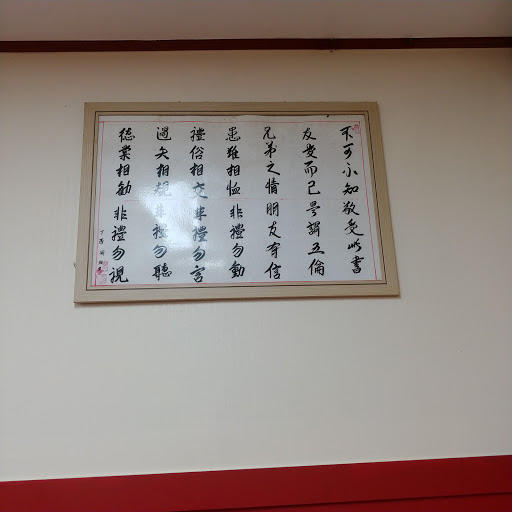 德業相勸非禮勿視
過失相規非禮勿聽
禮俗相交非禮勿言
患難相恤非禮勿動
兄弟之情朋友有信
友愛而已是謂五倫
不可小知敬受此書